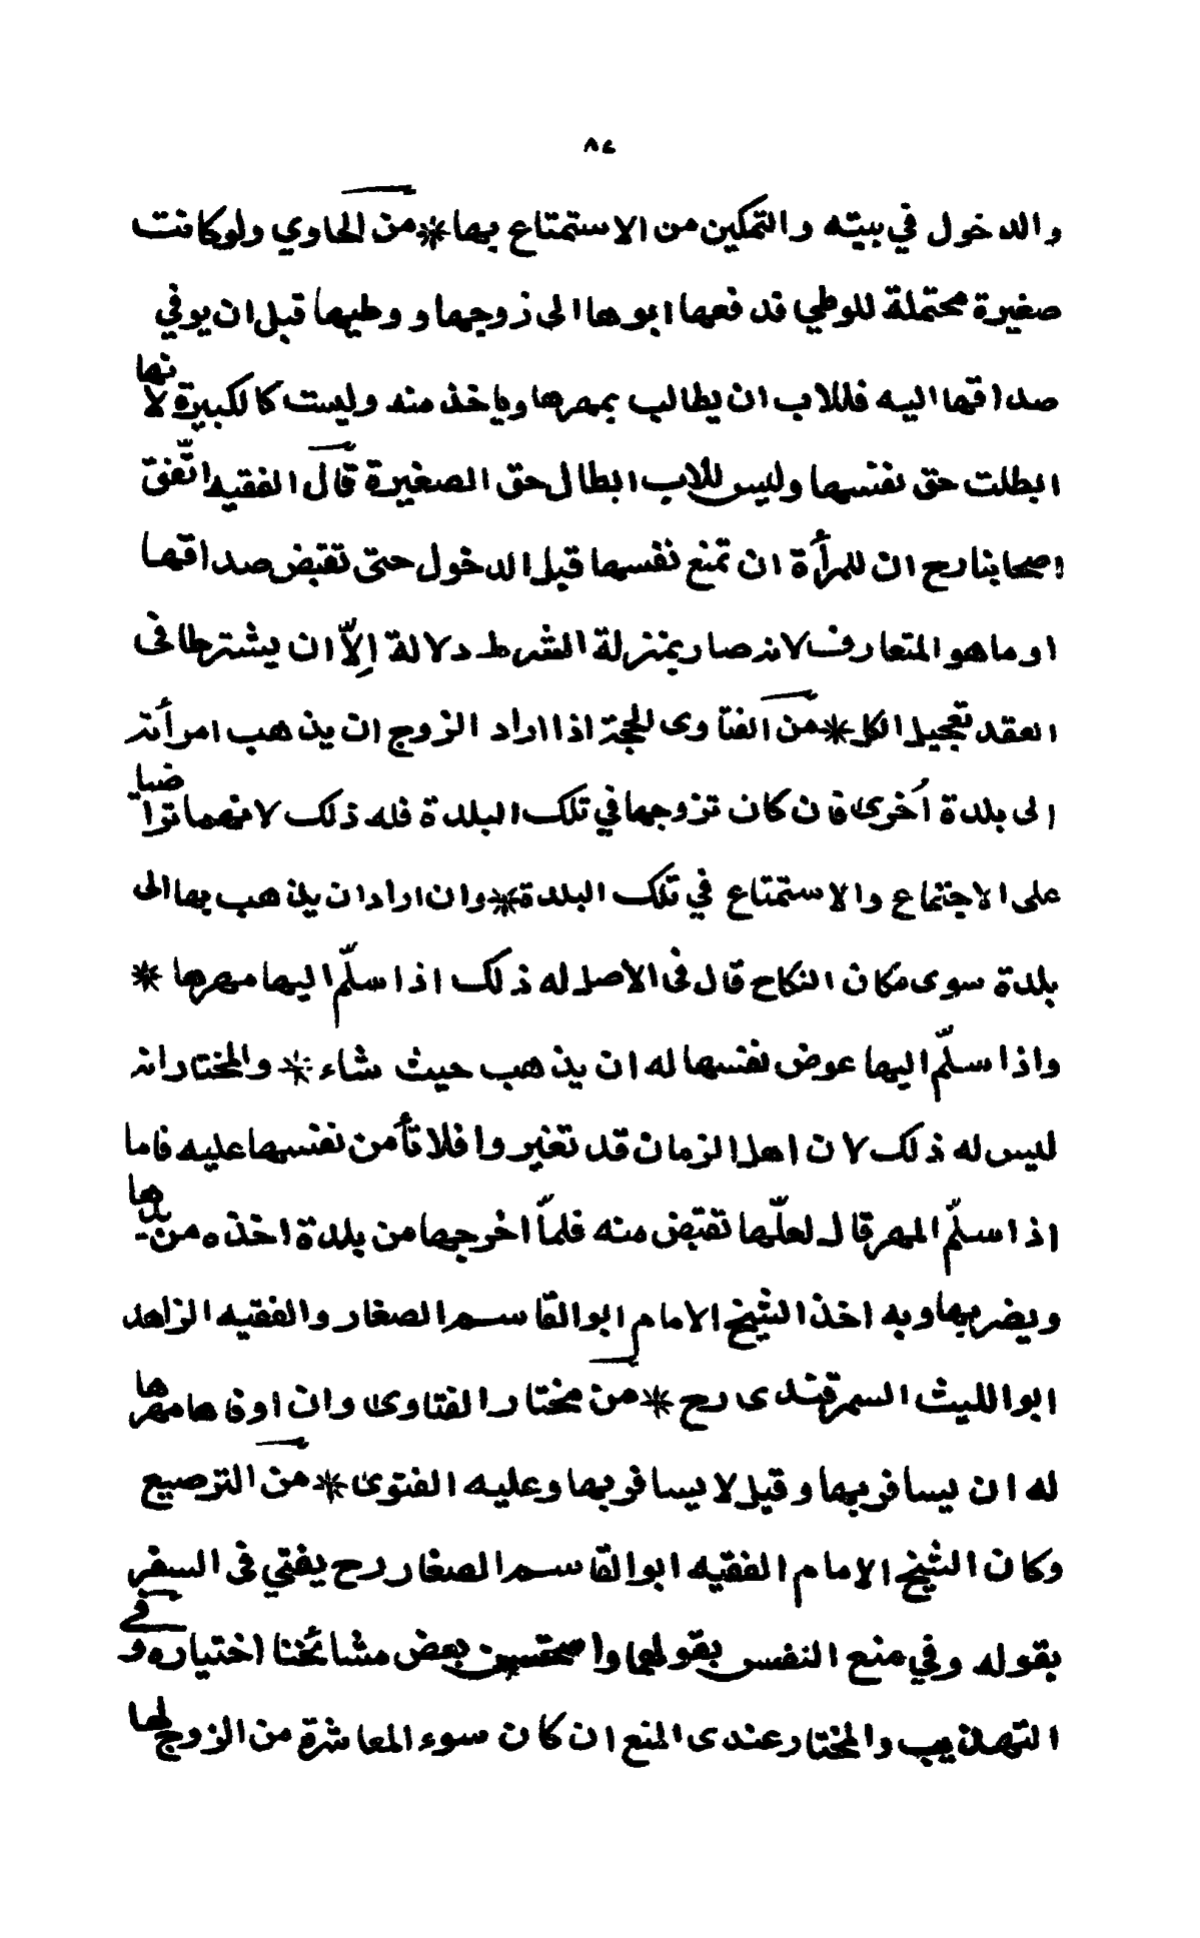 ٨٤
والدخول في بيته والتمكين من الاستمتاع بها * من الحاوي ولو كانت
صغيرة محتملة للوطي قد فعها ابوها الى زوجها و وطيها قبل ان يوفي
صداقها اليه فللاب ان يطالب بمهرها وياخذ منه وليست كالكبيرة لانها
ابطلت حق نفسها وليس للاب ابطال حق الصغيرة قال الفقيه اتّفق
اصحابنا رح ان للمرأة ان تمنع نفسها قبل الدخول حتى تقبض صداقها
او ما هو المتعارف لانه صار بمنزلة الشرط دلالة إلاّ ان يشترطا فى
العقد تعجيل الكل * من الفتاوى الحجة اذا اراد الزوج ان يذهب امرأته
الى بلدة اُخرى فان كان تزوجها في تلك البلدة فله ذلك لانهما تراضيا
على الاجتماع والاستمتاع في تلك البلدة * وان اراد ان يذهب بها الى
بلدة سوى مكان النكاح قال فى الاصل له ذلك اذا سلّم اليها مهرها *
واذا سلّم اليها عوض نفسها له ان يذهب حيث شاء * والمختار انه
ليس له ذلك لان اهل الزمان قد تغيروا فلا تأمن نفسها عليه فاما
اذا سلّم المهر قال لعلّها تقبض منه فلمّا اخرجها من بلدة اخذه من يدها
ويضر بها وبه اخذ الشيخ الامام ابو القاسم الصفار والفقيه الزاهد
ابو الليث السمرقندى رح * من مختار الفتاوى وان اوفاها مهرها
له ان يسافر بها وقيل لا يسافر بها وعليه الفتوى * من الترصيع
وكان الشيخ الامام الفقيه ابو القاسم الصفار رح يفتي فى السفر
بقوله وفي منع النفس بقولهما واستحسن بعض مشائخنا اختياره وفي
التهذيب والمختار عندى المنع ان كان سوء المعاشرة من الزوج لها